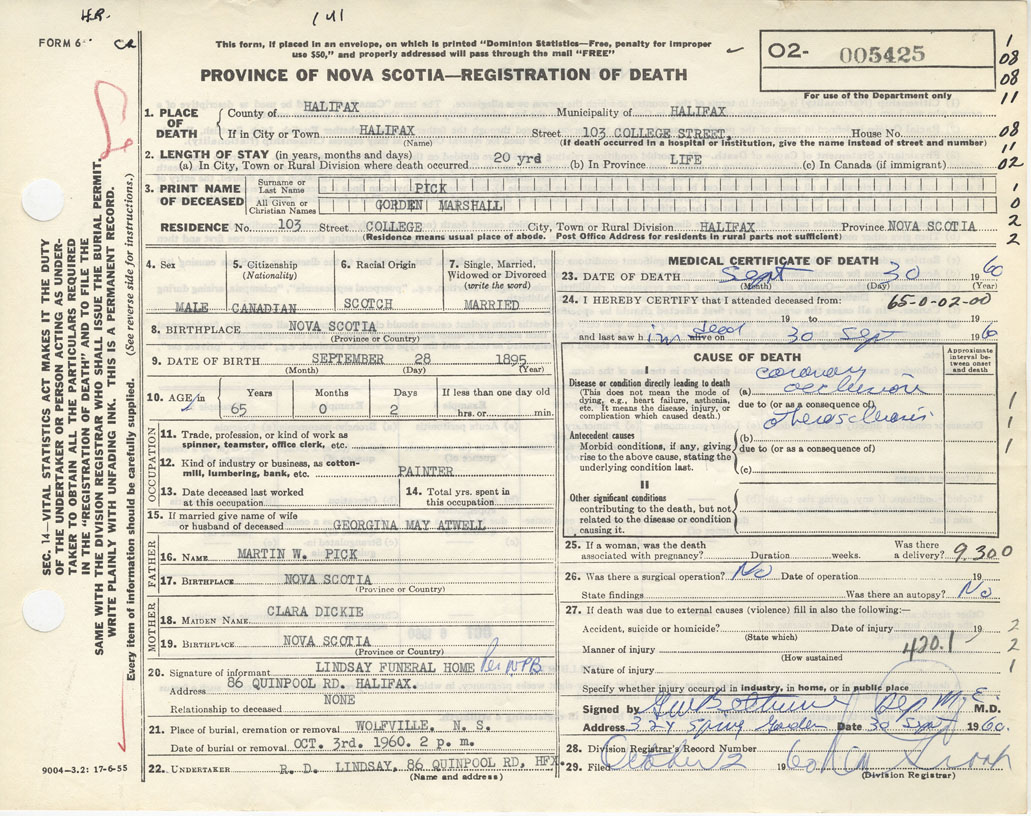 H.R. 141
FORM 6 CR
This form, if placed in an envelope, on which is printed "Dominion Statistics—Free, penalty for improper
use $50," and properly addressed will pass through the mail "FREE"
PROVINCE OF NOVA SCOTIA—REGISTRATION OF DEATH
O2- 005425
For use of the Department only
1
08
08
11
08
11
02
1
0
2
2
SEC. 14—VITAL STATISTICS ACT MAKES IT THE DUTY
OF THE UNDERTAKER OR PERSON ACTING AS UNDER-
TAKER TO OBTAIN ALL THE PARTICULARS REQUIRED
IN THE "REGISTRATION OF DEATH" AND TO FILE THE
SAME WITH THE DIVISION REGISTRAR WHO SHALL ISSUE THE BURIAL PERMIT.
WRITE PLAINLY WITH UNFADING INK. THIS IS A PERMANENT RECORD.
Every item of information should be carefully supplied. (See reverse side for instructions.)
1. PLACE OF DEATH
County of HALIFAX Municipality of HALIFAX
If in City or Town HALIFAX Street 103 COLLEGE STREET, House No.
(Name) (If death occurred in a hospital or institution, give the name instead of street and number)
2. LENGTH OF STAY (in years, months and days)
(a) In City, Town or Rural Division where death occurred 20 yrd (b) In Province LIFE (c) In Canada (if immigrant)
3. PRINT NAME OF DECEASED
Surname or Last Name PICK
All Given or Christian Names GORDEN MARSHALL
RESIDENCE No. 103 Street COLLEGE City, Town or Rural Division HALIFAX Province NOVA SCOTIA
(Residence means usual place of abode. Post Office Address for residents in rural parts not sufficient)
4. Sex MALE
5. Citizenship (Nationality) CANADIAN
6. Racial Origin SCOTCH
7. Single, Married, Widowed or Divorced (write the word) MARRIED
8. BIRTHPLACE NOVA SCOTIA
(Province or Country)
9. DATE OF BIRTH SEPTEMBER 28 1895
(Month) (Day) (Year)
10. AGE in Years Months Days If less than one day
65 0 2 hrs. or min.
OCCUPATION
11. Trade, profession, or kind of work as
spinner, teamster, office clerk, etc.
12. Kind of industry or business, as cotton-
mill, lumbering, bank, etc. PAINTER
13. Date deceased last worked
at this occupation
14. Total yrs. spent in
this occupation
15. If married give name of wife
or husband of deceased GEORGINA MAY ATWELL
FATHER
16. NAME MARTIN W. PICK
17. BIRTHPLACE NOVA SCOTIA
(Province or Country)
MOTHER
18. MAIDEN NAME CLARA DICKIE
19. BIRTHPLACE NOVA SCOTIA
(Province or Country)
20. Signature of informant LINDSAY FUNERAL HOME Per NPB
Address 86 QUINPOOL RD. HALIFAX.
Relationship to deceased NONE
21. Place of burial, cremation or removal WOLFVILLE, N. S.
Date of burial or removal OCT. 3rd. 1960. 2 p. m.
22. UNDERTAKER R. D. LINDSAY, 86 QUINPOOL RD, HFX.
(Name and address)
9004-3.2: 17-6-55
MEDICAL CERTIFICATE OF DEATH
23. DATE OF DEATH Sept 30 1960
(Month) (Day)
24. I HEREBY CERTIFY that I attended deceased from: 65-0-02-00
19 to
and last saw him dead alive on 30 Sept 1960
CAUSE OF DEATH
Approximate interval between onset and death
I
Disease or condition directly leading to death
(This does not mean the mode of
dying, e.g., heart failure, asthenia,
etc. It means the disease, injury, or
complication which caused death.)
(a) coronary occlusion
due to (or as a consequence of)
Antecedent causes
Morbid conditions, if any, giving
rise to the above cause, stating the
underlying condition last.
(b)
due to (or as a consequence of)
(c)
II
Other significant conditions
contributing to the death, but not
related to the disease or condition
causing it.
1
1
1
25. If a woman, was the death
associated with pregnancy? Duration weeks. Was there a delivery? 9.300
26. Was there a surgical operation? No Date of operation 19
State findings Was there an autopsy? No
27. If death was due to external causes (violence) fill in also the following:—
Accident, suicide or homicide? Date of injury 19 2
(State which)
Manner of injury 420.1 2
(How sustained
Nature of injury 1
Specify whether injury occurred in industry, in home, or in public place
Signed by Dep M.E. M.D.
Address 324 Spring Garden Date 30 Sept 1960.
28. Division Registrar's Record Number
29. Filed October 2 1960
(Division Registrar)